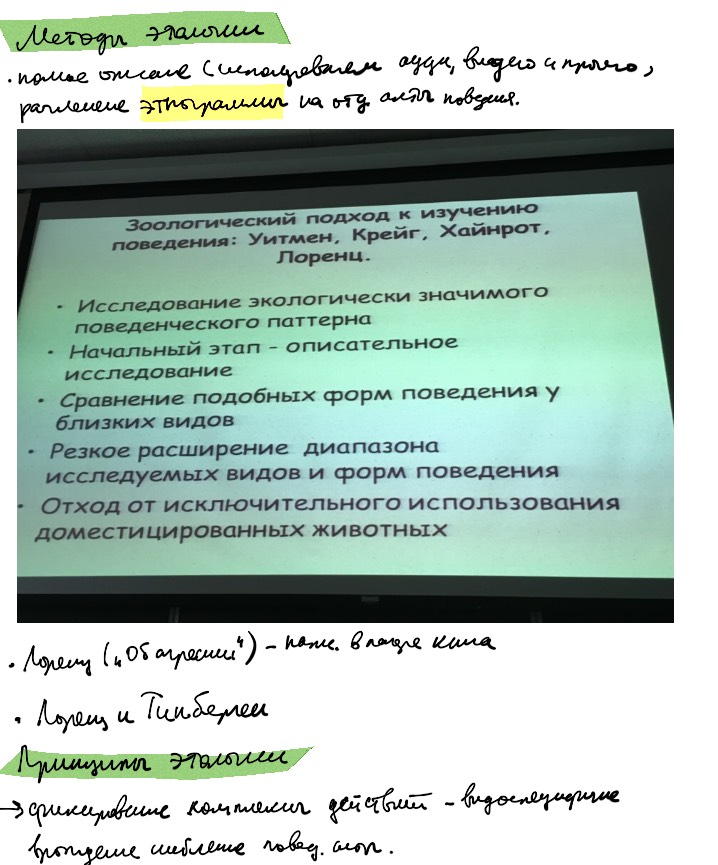 Методы этологии
· полное описание (с использованием аудио, видео и прочего,
расчленение этнограммы на отд. акты поведения.
Зоологический подход к изучению
поведения: Уитмен, Крейг, Хайнрот,
Лоренц.
· Исследование экологически значимого
поведенческого паттерна
· Начальный этап - описательное
исследование
· Сравнение подобных форм поведения у
близких видов
· Резкое расширение диапазона
исследуемых видов и форм поведения
· Отход от исключительного использования
доместицированных животных
· Лоренц („Об агрессии“) –
· Лоренц и Тинберген
Принципы этологии
→ фиксированные комплексы действий – видоспецифичные
врождённые шаблонные повед. акты.